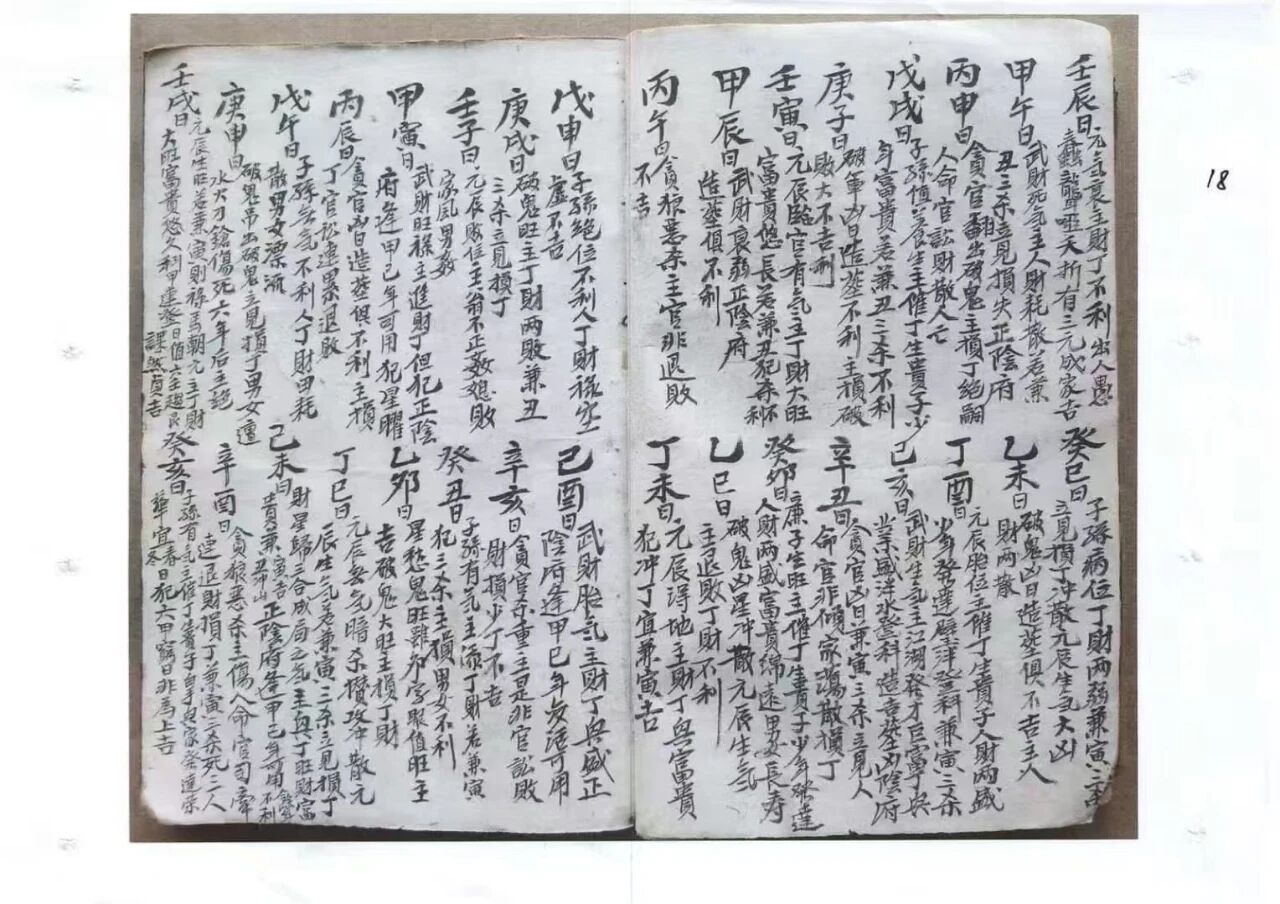 18
壬辰日元气衰主財丁不利出人愚
蠢聾啞夭折有三元成家吉
癸巳日子孫病位丁財两弱兼寅三杀
立見損丁冲散元辰生气大凶
甲午日武財死气主人財耗散若兼
丑三杀立見損失正陰府
乙未日破鬼凶日造塟俱不吉主人
財两散
丙申日貪官翻出破鬼主損丁絕嗣
人命官訟財散人亡
丁酉日元辰胎位主催丁生貴子人財两盛
少年發達登科兼寅三杀
戊戌日子孫值养生主催丁生貴子少
年富貴若兼丑三杀不利
己亥日武財生气主江湖發才巨富丁與
業盛泮水登科造吉塟凶陰府
庚子日破軍凶日造塟不利主損破
敗大不吉利
辛丑日貪官凶日兼寅三杀立見人
命官非傾家蕩散損丁
壬寅日元辰臨官有气主丁財大旺
富貴悠長若兼丑犯杀不利
癸卯日廉子生旺主催丁生貴子少年發達
人財两盛富貴綿遠男女長寿
甲辰日武財衰弱正陰府
造塟俱不利
乙巳日破鬼凶星冲散元辰生气
主退敗丁財不利
丙午日貪狼惡杀主官非退敗
不吉
丁未日元辰得地主財丁與富貴
犯冲丁宜兼寅吉
戊申日子孫絕位不利人丁財祿空
虛不吉
己酉日武財胎气主財丁與盛正
陰府逢甲己年勿活可用
庚戌日破鬼旺主丁財两敗兼丑
三杀立見損丁
辛亥日貪官杀重主是非官訟敗
財損少丁不吉
壬子日元辰敗位主翁不正姦媳敗
家乱男姦
癸丑日子孫有气主添丁財若兼寅
犯三杀主損男女不利
甲寅日武財旺祿主進財丁但犯正陰
府逢甲己年可用犯星曜
乙卯日星愁鬼旺雖卯字眾值旺主
吉破鬼大旺主損丁財
丙辰日貪官凶日造塟俱不利主損
丁官訟連累退敗
丁巳日元辰無气暗杀攢攻冲散元
辰生气若兼寅三杀立見損丁
戊午日子孫無气不利人丁財田耗
散男女漂流
己未日財星歸三合成局之气主與丁旺財富
貴兼寅吉丑冲山正陰府逢甲己年可用不利
庚申日破鬼吊出破鬼立見損丁男女遭
水火刀鎗傷死六年后主絕
辛酉日貪狼惡杀主傷人人命官司牽
連退財損丁兼寅三杀死三人
壬戌日元辰生旺若兼寅則祿馬朝元主丁財
大旺富貴悠久科甲連登日值六壬趋艮
課然貞吉
癸亥日子孫有气主催丁生貴子白手兴家荣達榮
華宜春冬日犯六甲窮日非為上吉